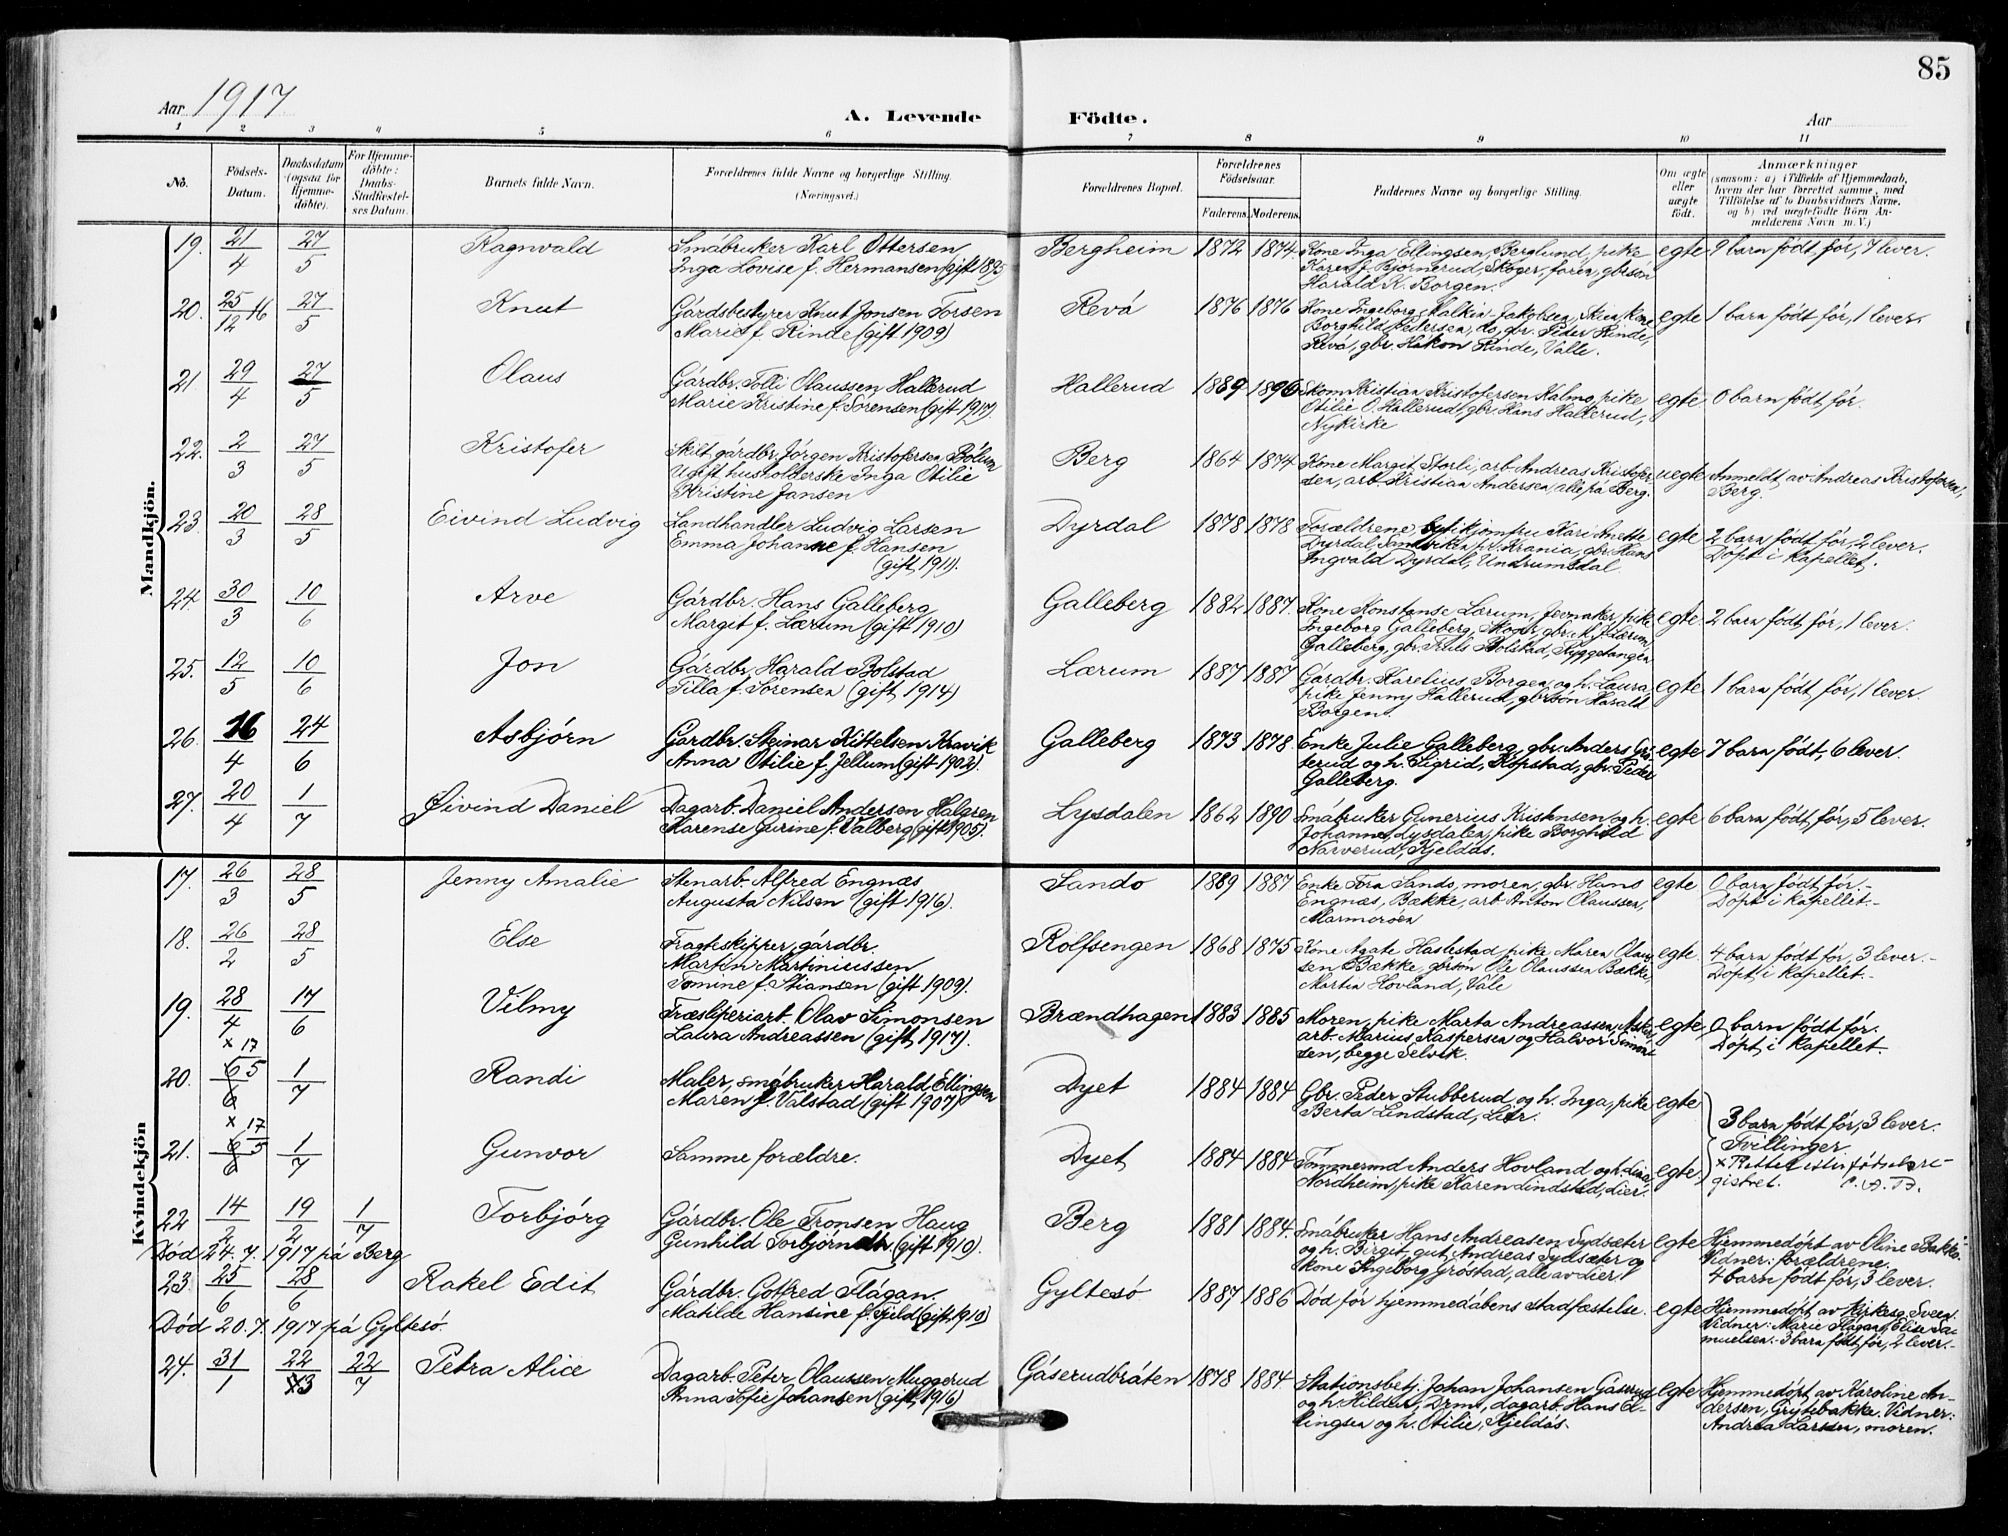 85
Aar 1917
A. Levende Födte.
Aar
1 2 3 4 5 6 7 8 9 10 11
No.
Födsels-Datum.
Daabsdatum (ogsaa for Hjemme-döbte).
For Hjemme-döbte: Daabs-Stadfæstel-ses Datum.
Barnets fulde Navn.
Forældrenes fulde Navne og borgerlige Stilling. (Næringsvei.)
Forældrenes Bopæl.
Forældrenes Födselsaar.
Faderens. Moderens.
Faddernes Navne og borgerlige Stilling.
Om ægte eller uægte födt.
Anmærkninger
(saasom: a) i Tilfælde af Hjemmedaab,
hvem der har forrettet samme, med
Tilföielse af to Daabsvidners Navne.
og b) ved uægtefödte Börn An-
melderens Navn m.V.)
Mandkjön.
19. 21/4 27/5 Ragnvald Småbruker Karl Ottersen Bergheim 1872 1874 Kone Inga Ellingsen, Berglund, pike egte 9 barn født før, 7 lever.
Inga Lovise f. Hermansen (gift 1895 Karen f. Bjørnerud, Skoger, faren, gbrsøn
Harald K. Borgen.
20. 25/12 16 27/5 Knut Gårdsbestyrer Knut Jonsen Torsen Revå 1876 1876 Kone Ingeborg Malkin-Jakobsen, Skien, kone egte 1 barn født før, 1 lever.
Marie f. Rinde (gift 1909) Borghild Pedersen, do, gbr. Peder Rinde,
Revå, gbr. Håkon Rinde, Valle.
21 29/4 27/5 Olaus Gårdbr. Tolli Olaussen Hallerud Hallerud 1889 1896 Skom. Kristian Kristofersen Kalmo, pike egte 0 barn født før.
Marie Kristine f. Sørensen (gift 1917). Otilie O. Hallerud, gbr. Hans Hallerud,
Nykirke
22. 2/3 27/5 Kristofer Skilt gårdbr. Jørgen Kristofersen Bølum Berg 1864 1874 Kone Margit Storli, arb. Andreas Kristofer- uegte Anmeldt av Andreas Kristofersen,
Ugift husholderske Inga Otilie sen, arb. Kristian Andersen, alle på Berg. Berg.
Kristine Jansen
23. 20/3 28/5 Eivind Ludvig Landhandler Ludvig Larsen Dyrdal 1878 1878 Forældrene, butikjomfru Kari Anette egte 2 barn født før, 2 lever.
Emma Johanne f. Hansen Dyrdal, Sandviken pr. Krania, gbr. Hans Døpt i kapellet.
(gift 1911). Ingvald Dyrdal, Undrumsdal.
24 30/3 10/6 Arve Gårdbr. Hans Galleberg Galleberg 1882 1887. Kone Konstanse Lærum, Jernaker, pike egte. 2 barn født før, 1 lever.
Margit f. Lærum (gift 1910) Ingeborg Galleberg, Skoger, gbr. M. J. Lærum,
Galleberg, gbr. Truls Bolstad, Ryggetangen
25. 12/5 10/6 Jon Gårdbr. Harald Bolstad Lærum 1887 1887 Gårdbr. Karelius Borgen og h. Laura, egte 1 barn født før, 1 lever.
Tilla f. Sørensen (gift 1914) pike Jenny Hallerud, gbrsøn Harald
Borgen.
26. 16/4 24/6 Asbjørn Gårdbr. Steinar Kittelsen Kravik Galleberg 1873 1878 Enke Julie Galleberg, gbr. Anders egte 7 barn født, 6 lever.
Anna Otilie f. Jellum (gift 1902). terud og h. Sigrid, Kopstad, gbr. Peder
Galleberg.
27. 20/4 1/7 Øivind Daniel Dagarb. Daniel Andersen Halgren Lysdalen 1862 1890 Småbruker Gunerius Kristensen og h. egte 6 barn født før, 5 lever.
Karense Gurine f. Valberg (gift 1905). Johanne, Lysdalen, pike Borghild
Narverud, Kjeldås.
Kvindekjön
17. 26/3 28/5 Jenny Amalie Stenarb. Alfred Engnæs Sando 1889 1887 Enke Tora Sando, moren, gbr. Hans egte 0 barn født før.-
Augusta Nilsen (gift 1916). Engnæs, Bække, arb. Anton Olaussen, Døpt i kapellet.-
Marmorøen
18. 26/2 28/5 Else Fragteskipper, gårdbr. Rolfsengen 1868 1875 Kone Agate Haslestad, pike Maren Olaus- egte. 4 barn født før, 3 lever.-
Martin Martiniussen sen Bække, gbrsøn Ole Olaussen Bække, Døpt i kapellet.-
Tomine f. Stiansen (gift 1909). Martin Hovland, Våle
19. 28/4 17/6 Vilmy Træsliperiarb. Olav Simonsen Brændhagen 1883 1885 Moren, pike Marta Andreassen, egte 0 barn født før.
Laura Andreassen (gift 1917). arb. Marius Kaspersen og Halvor Simon- Døpt i kapellet.
sen, begge Selvik.
20. x 17/5 6/6 1/7 Randi Maler, småbruker Harald Ellingsen Dyet 1884 1884 Gbr. Peder Stubberud og h. Inga, pike egte
Maren f. Valstad (gift 1907) Berta Lindstad, Lier. 3 barn født før, 3 lever.
Tvillinger.
21. x 17/5 6/6 1/7 Gunvor Samme forældre. Dyet 1884 1884 Tømmermd Anders Hovland og h. Lina egte x Rettet efter fødselsre-
Nordheim, pike Karen Lindstad, Lier. gistret.
22 14/2 19/2 1/7 Torbjørg Gårdbr. Ole Tronsen Haug Berg 1881 1884. Småbruker Hans Andreasen Sydsæter egte Hjemmedøpt av Oline Bakke.
Gunhild Torbjørndtr. (gift 1910). og h. Birgit, gut Andreas Sydsæter og Vidner: forældrene.
Død 24.7.1917 på Berg kone Ingeborg Grøstad, alle av Lier. 4 barn født før, 3 lever.
23. 25/6 28/6 Rakel Edit Gårdbr. Gotfred Flågan. Gyltesø 1887 1886 Død før hjemmedåbens stadfæstelse. egte Hjemmedøpt av kirkesg. Sveen.
Matilde Hansine f. Fjeld (gift 1910) Vidner: Marie Flågan, Elise Sa-
Død 20.7.1917 på Gyltesø. muelsen.- 3 barn født før, 2 lever.-
24. 31/1 22/3 22/7 Petra Alice Dagarb. Peter Olaussen Muggerud Gåserudbråten 1878 1884. Stationsbetj. Johan Johansen Gåserud egte Hjemmedøpt av Karoline An-
Anna Sofie Johansen (gift 1916) og h. Hilda, Drm., dagarb. Hans El- dersen, Grytebakke. Vidner:
lingsen og h. Otilie, Kjeldås. Andrea Larssen, moren.